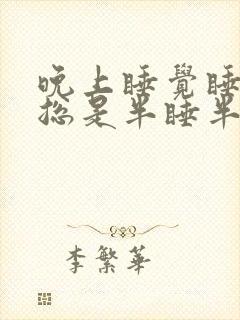 晚上睡覺睡
總是半睡半
李繁華